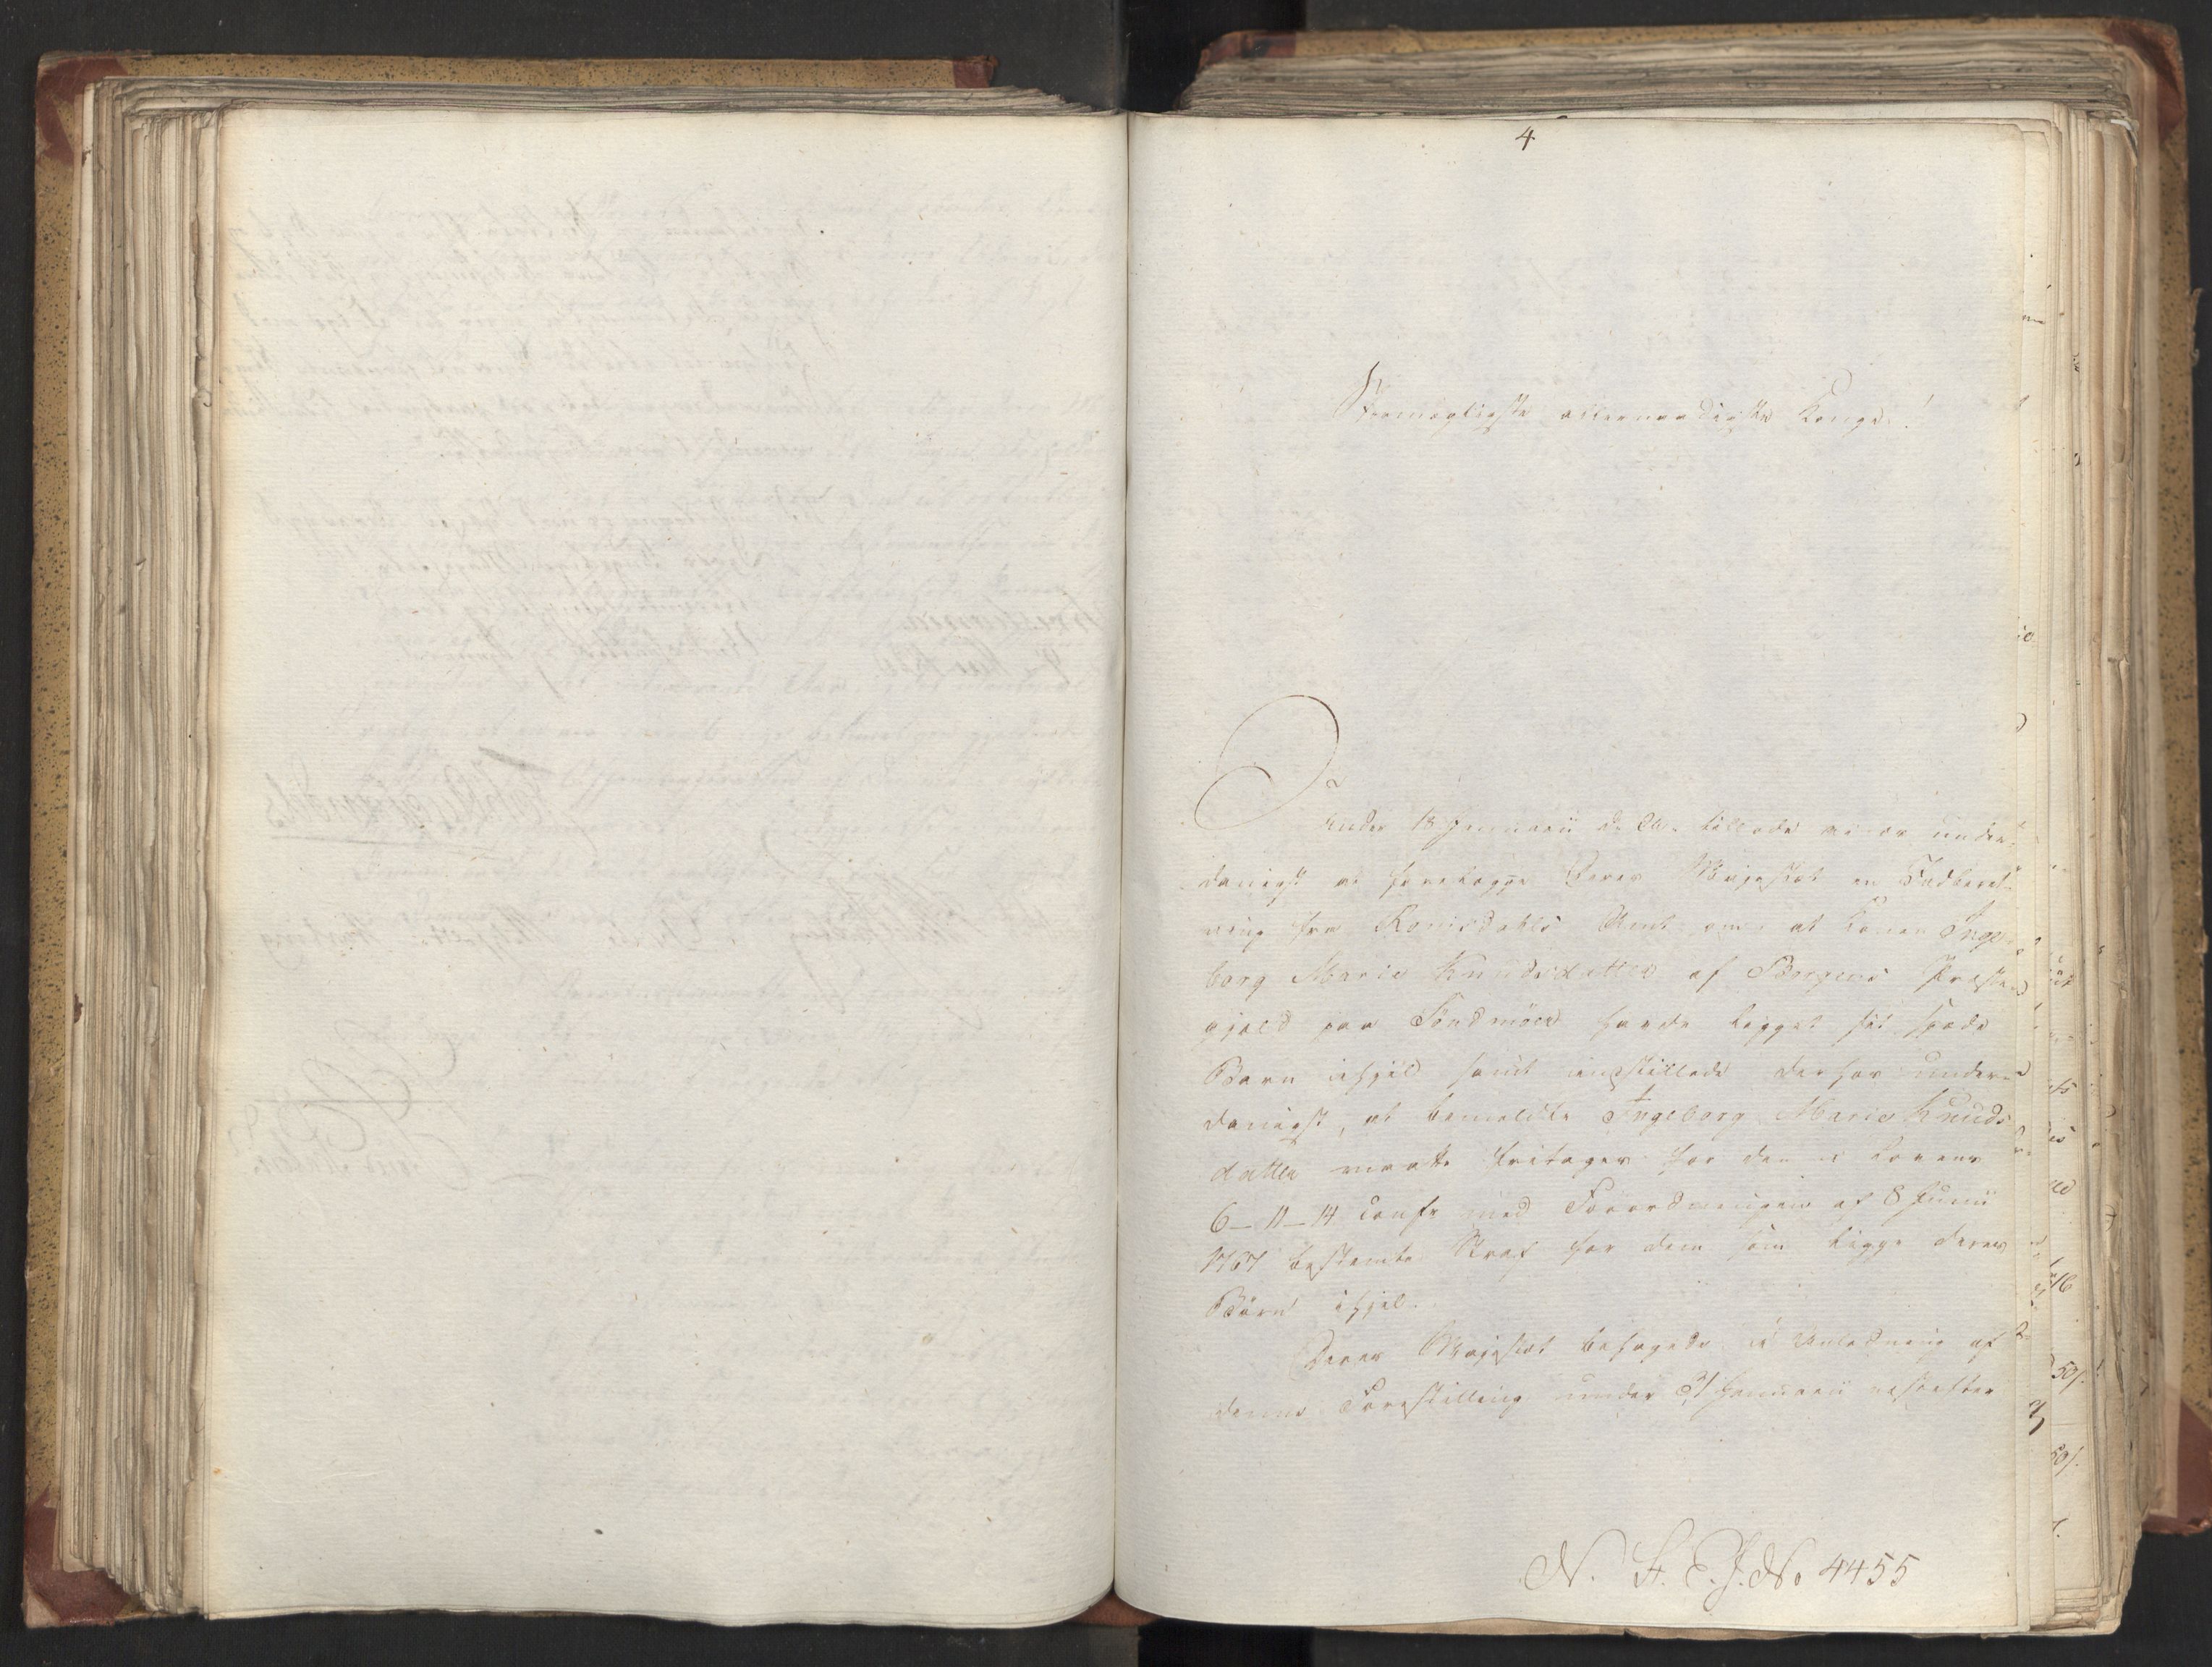 4
Stormægtigste allernaadigste Konge!
Under 18 Januarii d. A. tillode vi os under-
danigst at forelægge Deres Majestæt en Indberet-
ning fra Romsdahls Amt om at Konen Inge-
borg Marie Knudsdatter af Borgens Præste-
gjeld paa Söndmöer havde ligget sit spæde
Barn ihjel samt indstillede derfor under-
danigst, at bemeldte Ingeborg Marie Knuds-
datter maatte fritages for den i Lovens
6-11-14 confr med Forordningen af 8 Junii
1767 bestemte Straf for dem som ligge deres
Börn ihjel.
Deres Majestæt behagede i Anledning af
denne Forestilling under 31 Januarii nestefter
N. St. E. J. No 4455